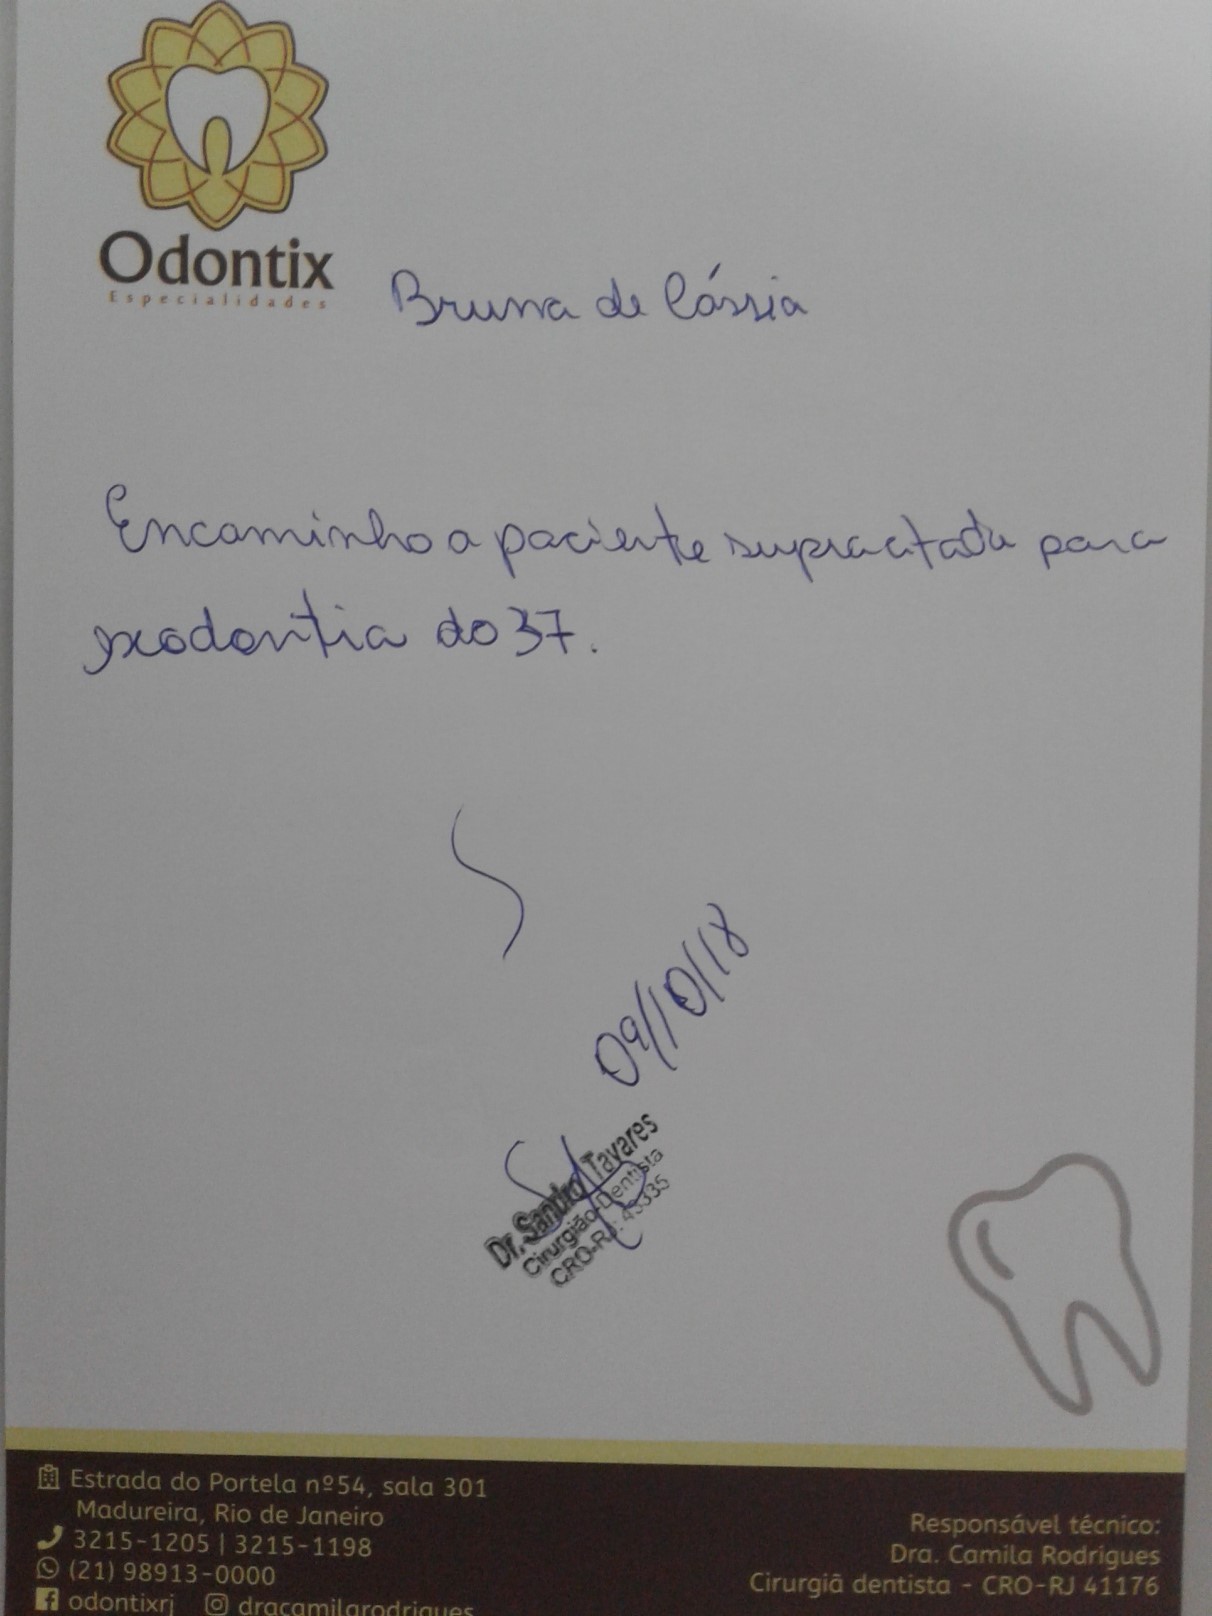 Odontix
Especialidades
Bruna de Cássia
Encaminho a paciente supracitada para
exodontia do 37.
09/10/18
Dr. Sandro Tavares
Cirurgião-Dentista
CRO-RJ: 43335
Estrada do Portela nº54, sala 301
Madureira, Rio de Janeiro
3215-1205 | 3215-1198
(21) 98913-0000
odontixrj dracamilarodrigues
Responsável técnico:
Dra. Camila Rodrigues
Cirurgiã dentista - CRO-RJ 41176